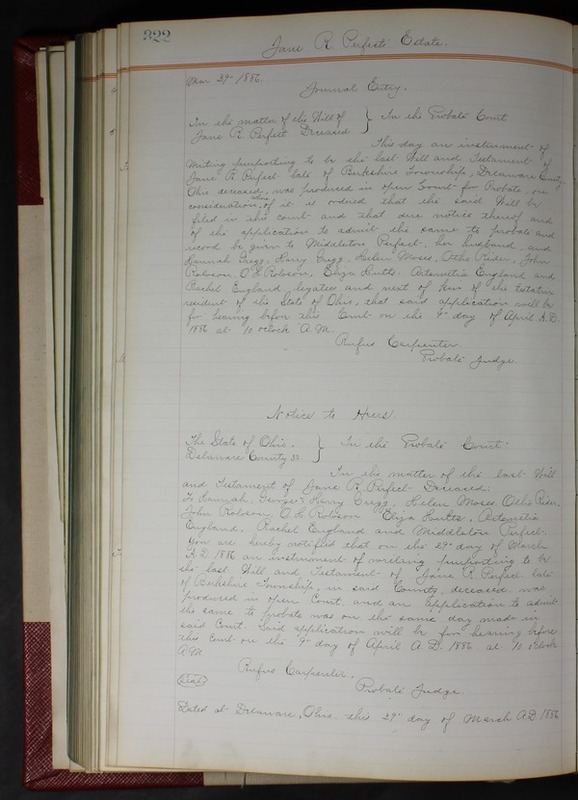 322
Jane R. Perfect Estate.
Mar 29" 1886.
Journal Entry.
In the matter of the Will of } In the Probate Court
Jane R. Perfect Deceased
This day an instrument of
writing purporting to be the last Will and Testament of
Jane R. Perfect late of Berkshire Township, Delaware County
Ohio deceased, was produced in open Court for Probate, on
consideration of it is ordered that the said Will be
filed in this court and that due notice thereof and
of the application to admit the same to probate and
record be given to Middleton Perfect, her husband, and
Hannah Gregg, Harry Gregg, Helen Moses, Otho Rider, John
Robson, O.E. Robson, Eliza Hults, Artemetia England and
Rachel England legatees and next of kin of the testatrix
resident of the State of Ohio, that said application will be
for hearing before this Court on the 9" day of April A.D.
1886 at 10 oclock A.M.
Rufus Carpenter
Probate Judge.
Notice to Heirs.
The State of Ohio. } In the Probate Court:
Delaware County ss.
In the matter of the last Will
and Testament of Jane R. Perfect Deceased:
To Hannah, George & Harry Gregg, Helen Moses, Otho Rider,
John Robson, O.E. Robson Eliza Hults, Artemetia
England, Rachel England and Middleton Perfect:
You are hereby notified that on the 29" day of March
A.D. 1886 an instrument of writing purporting to be
the last Will and Testament of Jane R. Perfect late
of Berkshire Township, in said County, deceased was
produced in open Court and an application to admit
the same to probate was on the same day made in
said Court. Said application will be for hearing before
this Court on the 9" day of April A.D. 1886 at 10 oclock
A.M.
Rufus Carpenter,
Seal
Probate Judge.
Dated at Delaware, Ohio this 29" day of March A.D. 1886